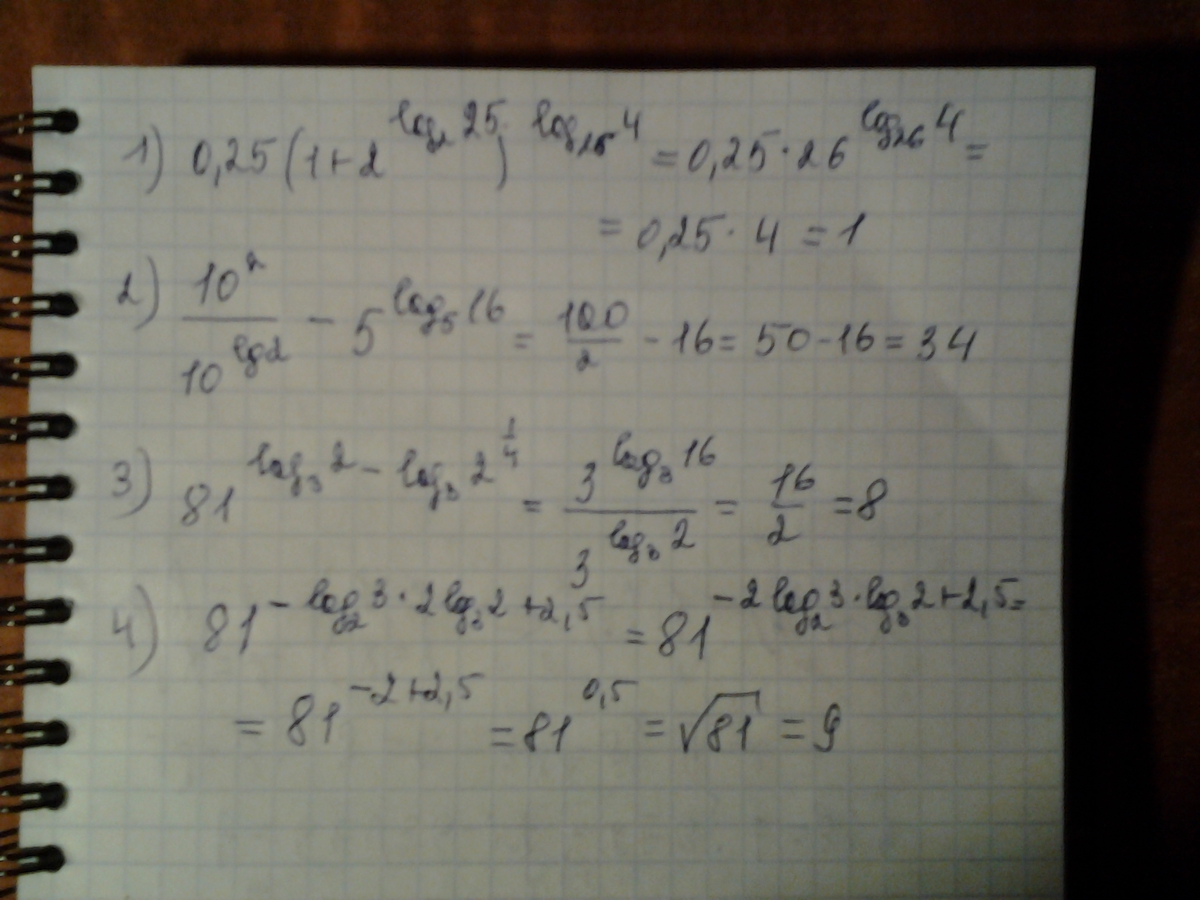 1) 0,25(1+2^{log_2 25})^{log_{26} 4} = 0,25·26^{log_{26} 4} =
= 0,25·4 = 1
2) \frac{10^2}{10^{lg2}} - 5^{log_5 16} = \frac{100}{2} - 16 = 50-16 = 34
3) 81^{log_3 2 - log_3 2^{\frac{1}{4}}} = \frac{3^{log_3 16}}{3^{log_3 2}} = \frac{16}{2} = 8
4) 81^{-log_2 3·2log_3 2+2,5} = 81^{-2log_2 3·log_3 2+2,5} =
= 81^{-2+2,5} = 81^{0,5} = \sqrt{81} = 9